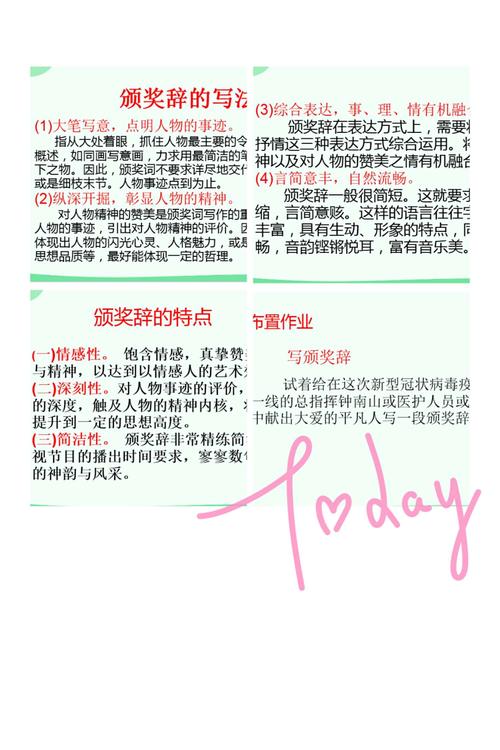 颁奖辞的写法
(1)大笔写意，点明人物的事迹。
指从大处着眼，抓住人物最主要的令
概述，如同画写意画，力求用最简洁的笔
下之物。因此，颁奖词不要求详尽地交代
或是细枝末节。人物事迹点到为止。
(2)纵深开掘，彰显人物的精神。
对人物精神的赞美是颁奖词写作的重
人物的事迹，引出对人物精神的评价。因
体现出人物的闪光心灵、人格魅力，或是
思想品质等，最好能体现一定的哲理。
(3)综合表达，事、理、情有机融
颁奖辞在表达方式上，需要将
抒情这三种表达方式综合运用。将
神以及对人物的赞美之情有机融合
(4)言简意丰，自然流畅。
颁奖辞一般很简短。这就要求
缩，言简意赅。这样的语言往往字
丰富，具有生动、形象的特点，同
畅，音韵铿锵悦耳，富有音乐美。
颁奖辞的特点
(一)情感性。 饱含情感，真挚赞
与精神，以达到以情感人的艺术
(二)深刻性。对人物事迹的评价，
的深度，触及人物的精神内核，
提升到一定的思想高度。
(三)简洁性。 颁奖辞非常精练简
视节目的播出时间要求，寥寥数
的神韵与风采。
布置作业
写颁奖辞
试着给在这次新型冠状病毒疫
一线的总指挥钟南山或医护人员或
中献出大爱的平凡人写一段颁奖辞
Today